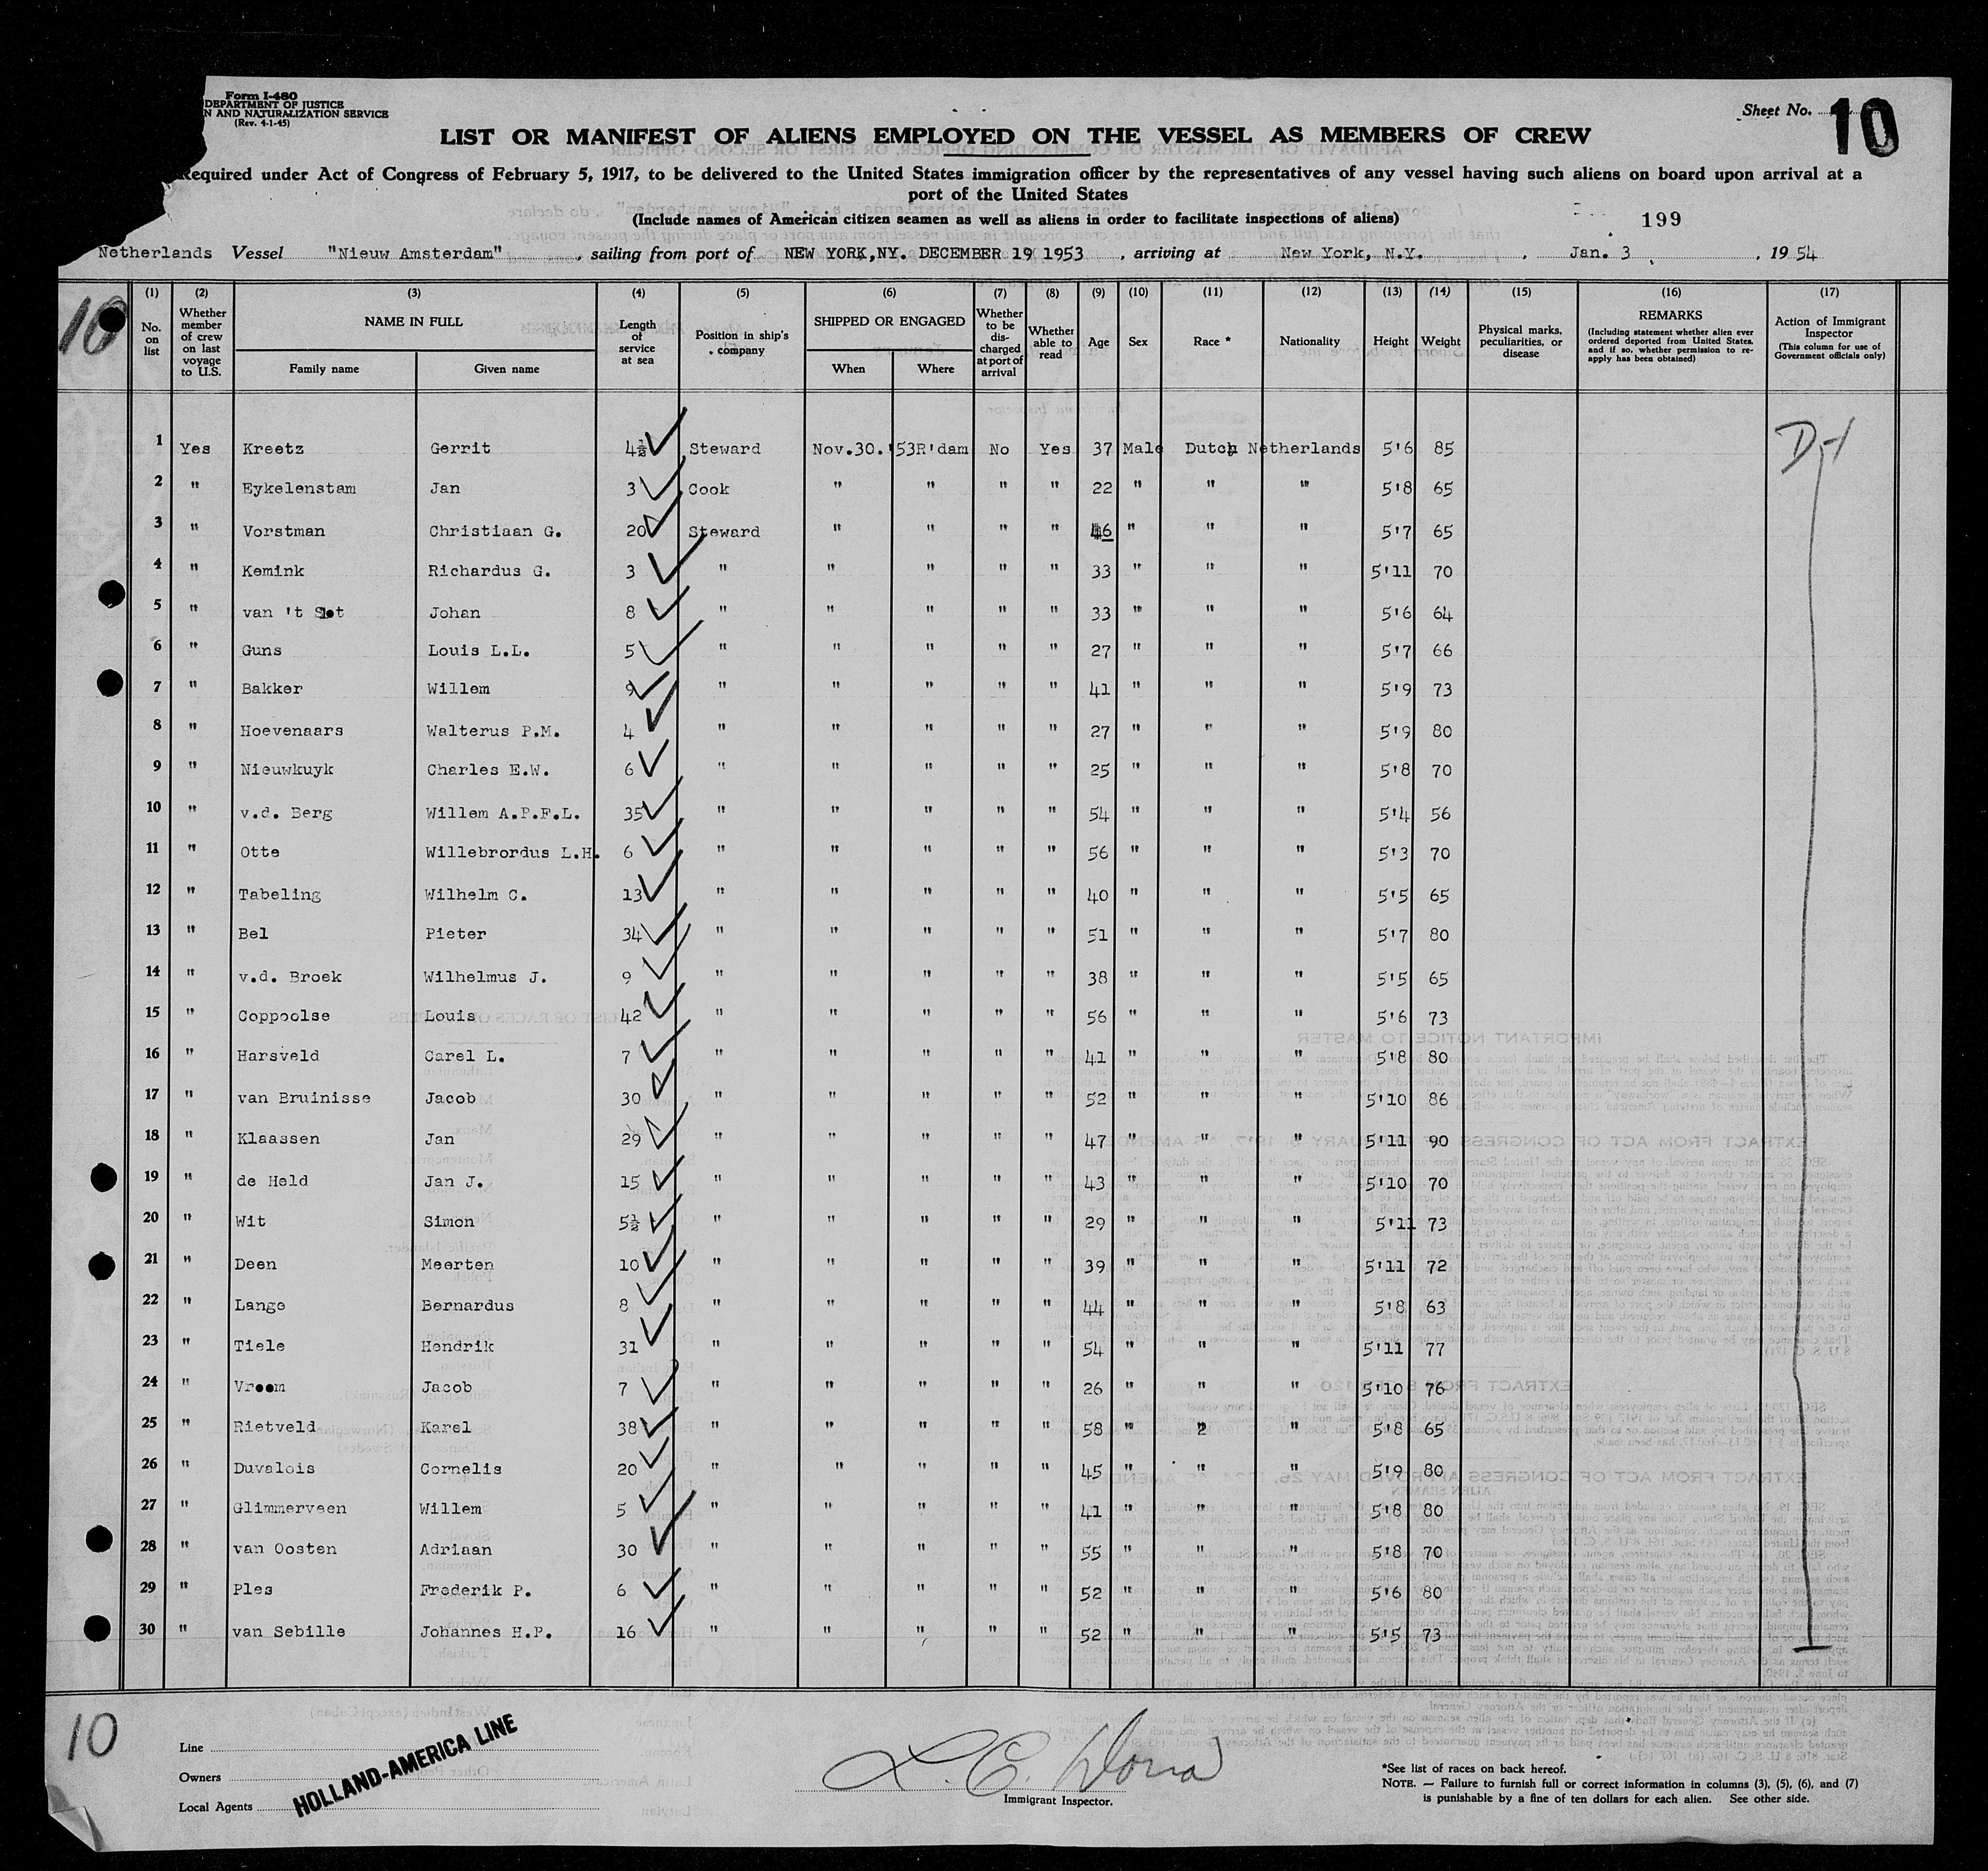 Form I-480
DEPARTMENT OF JUSTICE
N AND NATURALIZATION SERVICE
(Rev. 4-1-45)
Sheet No. 10
LIST OR MANIFEST OF ALIENS EMPLOYED ON THE VESSEL AS MEMBERS OF CREW
Required under Act of Congress of February 5, 1917, to be delivered to the United States immigration officer by the representatives of any vessel having such aliens on board upon arrival at a
port of the United States
(Include names of American citizen seamen as well as aliens in order to facilitate inspections of aliens)
199
Netherlands Vessel "Nieuw Amsterdam", sailing from port of NEW YORK,NY. DECEMBER 19 1953, arriving at New York, N.Y., Jan. 3, 1954
10
(1) No. on list
(2) Whether member of crew on last voyage to U.S.
(3) NAME IN FULL
Family name Given name
(4) Length of service at sea
(5) Position in ship's company
(6) SHIPPED OR ENGAGED
When Where
(7) Whether to be discharged at port of arrival
(8) Whether able to read
(9) Age
(10) Sex
(11) Race *
(12) Nationality
(13) Height
(14) Weight
(15) Physical marks, peculiarities, or disease
(16) REMARKS
(Including statement whether alien ever ordered deported from United States, and if so, whether permission to re-apply has been obtained)
(17) Action of Immigrant Inspector
(This column for use of Government officials only)
1 Yes Kreetz Gerrit 4½ Steward Nov.30.'53 R'dam No Yes 37 Male Dutch Netherlands 5'6 85
2 " Eykelenstam Jan 3 Cook " " " " 22 " " " 5'8 65
3 " Vorstman Christiaan G. 20 Steward " " " " 46 " " " 5'7 65
4 " Kemink Richardus G. 3 " " " " " 33 " " " 5'11 70
5 " van 't Slot Johan 8 " " " " " 33 " " " 5'6 64
6 " Guns Louis L.L. 5 " " " " " 27 " " " 5'7 66
7 " Bakker Willem 9 " " " " " 41 " " " 5'9 73
8 " Hoevenaars Walterus P.M. 4 " " " " " 27 " " " 5'9 80
9 " Nieuwkuyk Charles E.W. 6 " " " " " 25 " " " 5'8 70
10 " v.d. Berg Willem A.P.F.L. 35 " " " " " 54 " " " 5'4 56
11 " Otte Willebrordus L.H. 6 " " " " " 56 " " " 5'3 70
12 " Tabeling Wilhelm C. 13 " " " " " 40 " " " 5'5 65
13 " Bel Pieter 34 " " " " " 51 " " " 5'7 80
14 " v.d. Broek Wilhelmus J. 9 " " " " " 38 " " " 5'5 65
15 " Coppoolse Louis 42 " " " " " 56 " " " 5'6 73
16 " Harsveld Carel L. 7 " " " " " 41 " " " 5'8 80
17 " van Bruinisse Jacob 30 " " " " " 52 " " " 5'10 86
18 " Klaassen Jan 29 " " " " " 47 " " " 5'11 90
19 " de Held Jan J. 15 " " " " " 43 " " " 5'10 70
20 " Wit Simon 5½ " " " " " 29 " " " 5'11 73
21 " Deen Meerten 10 " " " " " 39 " " " 5'11 72
22 " Lange Bernardus 8 " " " " " 44 " " " 5'8 63
23 " Tiele Hendrik 31 " " " " " 54 " " " 5'11 77
24 " Vroom Jacob 7 " " " " " 26 " " " 5'10 76
25 " Rietveld Karel 38 " " " " " 58 " 2 " 5'8 65
26 " Duvalois Cornelis 20 " " " " " 45 " " " 5'9 80
27 " Glimmerveen Willem 5 " " " " " 41 " " " 5'8 80
28 " van Oosten Adriaan 30 " " " " " 55 " " " 5'8 70
29 " Ples Frederik P. 6 " " " " " 52 " " " 5'6 80
30 " van Sebille Johannes H.P. 16 " " " " " 52 " " " 5'5 73
10
Line
Owners
Local Agents
HOLLAND-AMERICA LINE
Immigrant Inspector.
*See list of races on back hereof.
NOTE. — Failure to furnish full or correct information in columns (3), (5), (6), and (7)
is punishable by a fine of ten dollars for each alien. See other side.